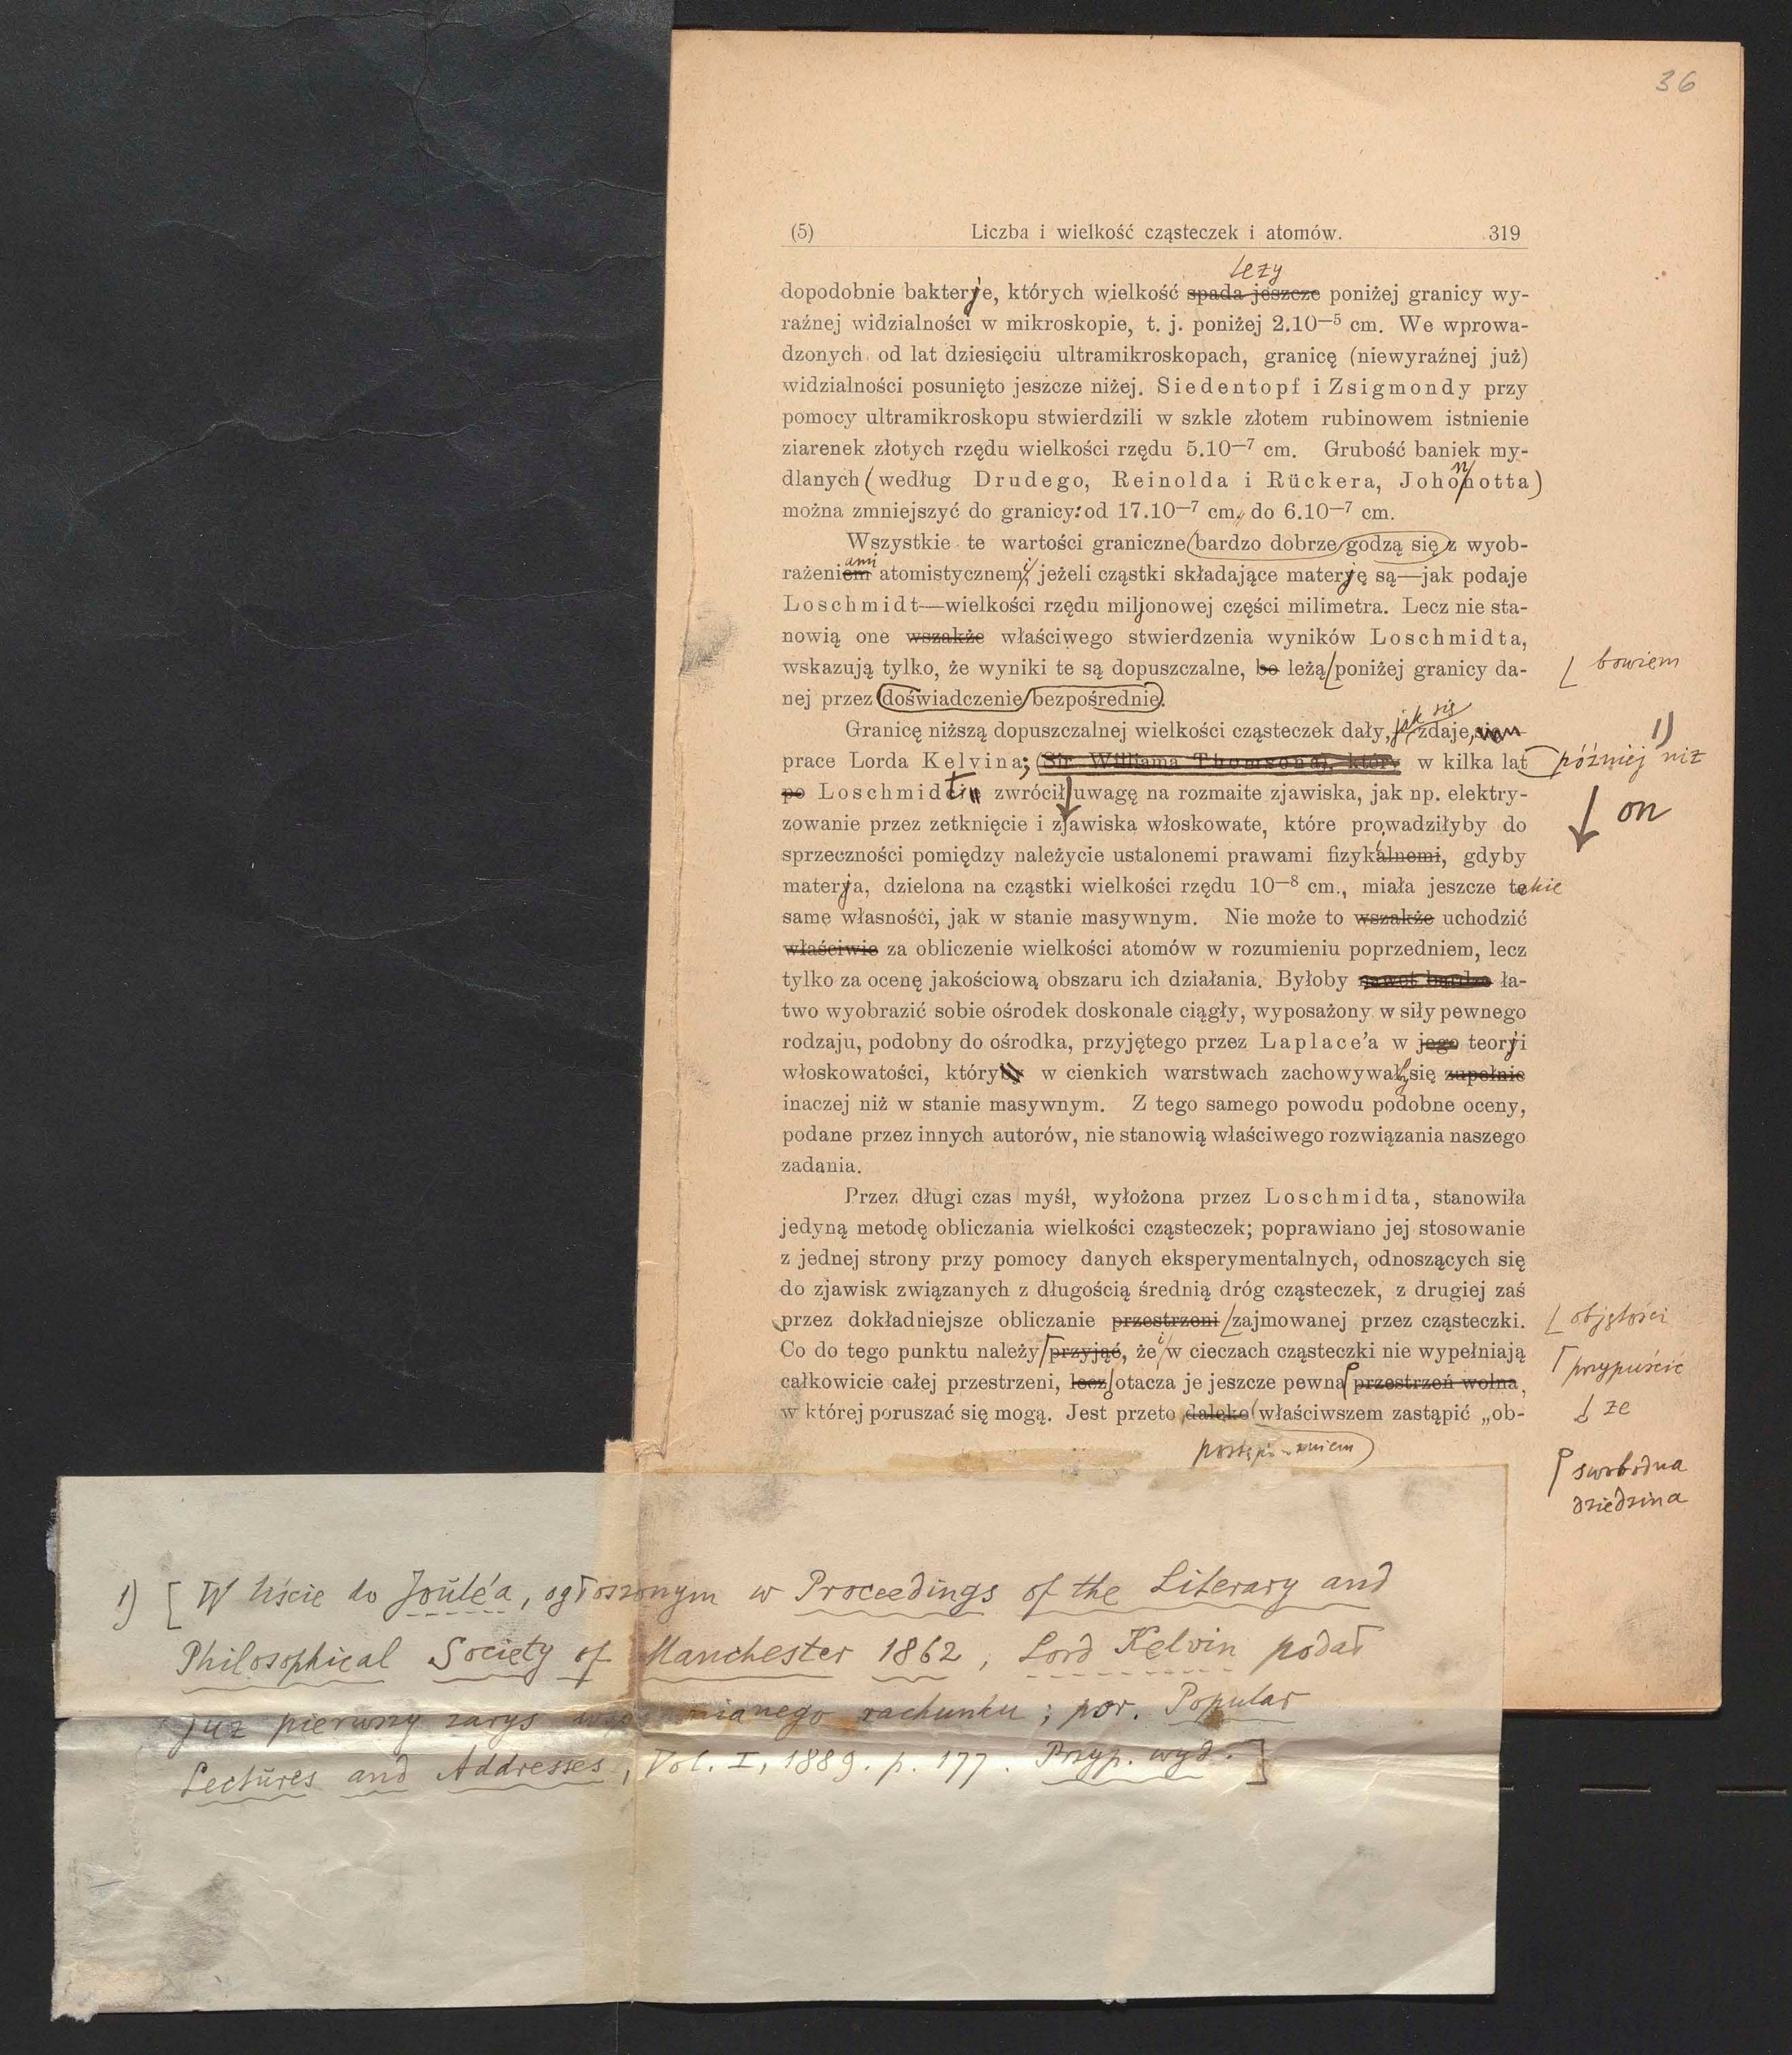 36
(5) Liczba i wielkość cząsteczek i atomów. 319
leży
dopodobnie bakterje, których wielkość spada jeszcze poniżej granicy wy-
raźnej widzialności w mikroskopie, t. j. poniżej 2.10—5 cm. We wprowa-
dzonych od lat dziesięciu ultramikroskopach, granicę (niewyraźnej już)
widzialności posunięto jeszcze niżej. Siedentopf i Zsigmondy przy
pomocy ultramikroskopu stwierdzili w szkle złotem rubinowem istnienie
ziarenek złotych rzędu wielkości rzędu 5.10—7 cm. Grubość baniek my-
n
dlanych (według Drudego, Reinolda i Rückera, Johohotta)
można zmniejszyć do granicy: od 17.10—7 cm. do 6.10—7 cm.
Wszystkie te wartości graniczne bardzo dobrze godzą się z wyob-
ami i
rażeniem atomistycznem, jeżeli cząstki składające materję są—jak podaje
Loschmidt—wielkości rzędu miljonowej części milimetra. Lecz nie sta-
nowią one wszakże właściwego stwierdzenia wyników Loschmidta,
wskazują tylko, że wyniki te są dopuszczalne, bo leżą poniżej granicy da- bowiem
nej przez doświadczenie bezpośrednie.
jak się
Granicę niższą dopuszczalnej wielkości cząsteczek dały, zdaje, 1)
prace Lorda Kelvina; (Sir Williama Thomsona), który w kilka lat później niż
po Loschmidt zwrócił uwagę na rozmaite zjawiska, jak np. elektry- on
zowanie przez zetknięcie i zjawiska włoskowate, które prowadziłyby do
sprzeczności pomiędzy należycie ustalonemi prawami fizykalnemi, gdyby
materja, dzielona na cząstki wielkości rzędu 10—8 cm., miała jeszcze takie
same własności, jak w stanie masywnym. Nie może to wszakże uchodzić
właściwie za obliczenie wielkości atomów w rozumieniu poprzedniem, lecz
tylko za ocenę jakościową obszaru ich działania. Byłoby nawet bardzo ła-
two wyobrazić sobie ośrodek doskonale ciągły, wyposażony w siły pewnego
rodzaju, podobny do ośrodka, przyjętego przez Laplace'a w jego teorji
włoskowatości, któryby w cienkich warstwach zachowywałby się zupełnie
inaczej niż w stanie masywnym. Z tego samego powodu podobne oceny,
podane przez innych autorów, nie stanowią właściwego rozwiązania naszego
zadania.
Przez długi czas myśl, wyłożona przez Loschmidta, stanowiła
jedyną metodę obliczania wielkości cząsteczek; poprawiano jej stosowanie
z jednej strony przy pomocy danych eksperymentalnych, odnoszących się
do zjawisk związanych z długością średnią dróg cząsteczek, z drugiej zaś
przez dokładniejsze obliczanie przestrzeni zajmowanej przez cząsteczki. objętości
Co do tego punktu należy przyjąć, że i w cieczach cząsteczki nie wypełniają przypuścić
całkowicie całej przestrzeni, lecz otacza je jeszcze pewna przestrzeń wolna, że
w której poruszać się mogą. Jest przeto daleko właściwszem zastąpić „ob-
postępowaniem
swobodna
dziedzina
1) [W liście do Joule'a, ogłoszonym w Proceedings of the Literary and
Philosophical Society of Manchester 1862, Lord Kelvin podał
już pierwszy zarys wspomnianego rachunku; por. Popular
Lectures and Addresses, Vol. I, 1889. p. 177. Przyp. wyd.]